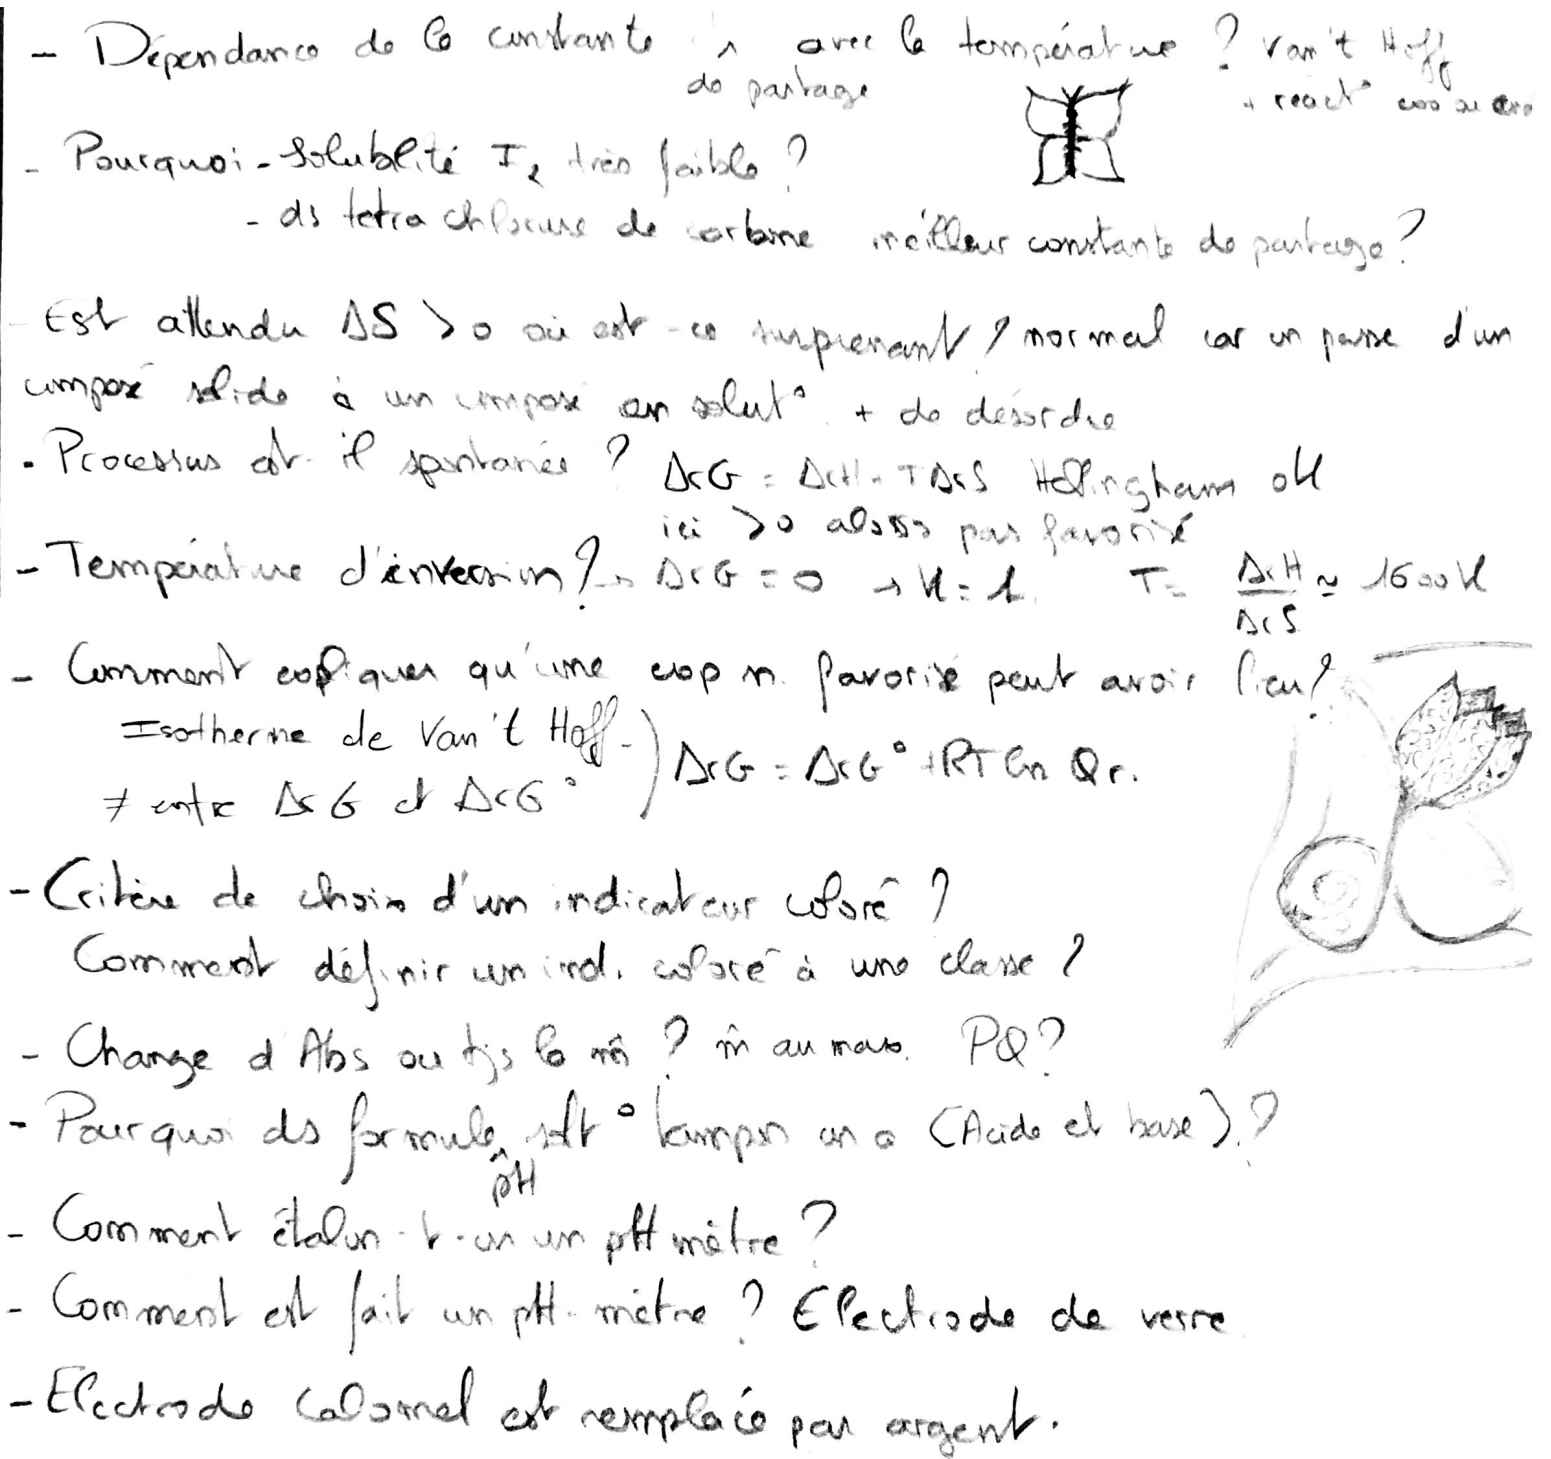 - Dépendance de la constante ^ avec la température ? Van't Hoff
de partage
+ react° exo ou endo
- Pourquoi - Solubilité I2 très faible ?
- ds tetra chlorure de carbone meilleur constante de partage ?
- Est attendu ΔS > 0 où est-ce surprenant ? normal car on passe d'un
composé solide à un composé en solut° + de désordre
- Processus est-il spontanée ? ΔrG = ΔrH - TΔrS Hellingham ok
ici > 0 alors pas favorisé
- Température d'inversion ? → ΔrG = 0 → K = 1. T = ΔrH/ΔrS ≃ 1600 K
- Comment expliquer qu'une exp n. favorisé peut avoir lieu ?
Isotherme de Van't Hoff
≠ entre ΔrG et ΔrG° ) ΔrG = ΔrG° + RT ln Qr.
- Critère de choix d'un indicateur coloré ?
Comment définir un ind. coloré à une classe ?
- Change d Abs ou tjs la m̂ ? m̂ au max. PQ ?
- Pourquoi ds formule ^ solt° tampon on a (Acide et base) ?
pH
- Comment étalon-t-on un pH mètre ?
- Comment est fait un pH-mètre ? Electrode de verre
- Electrode Calomel est remplacé par argent.